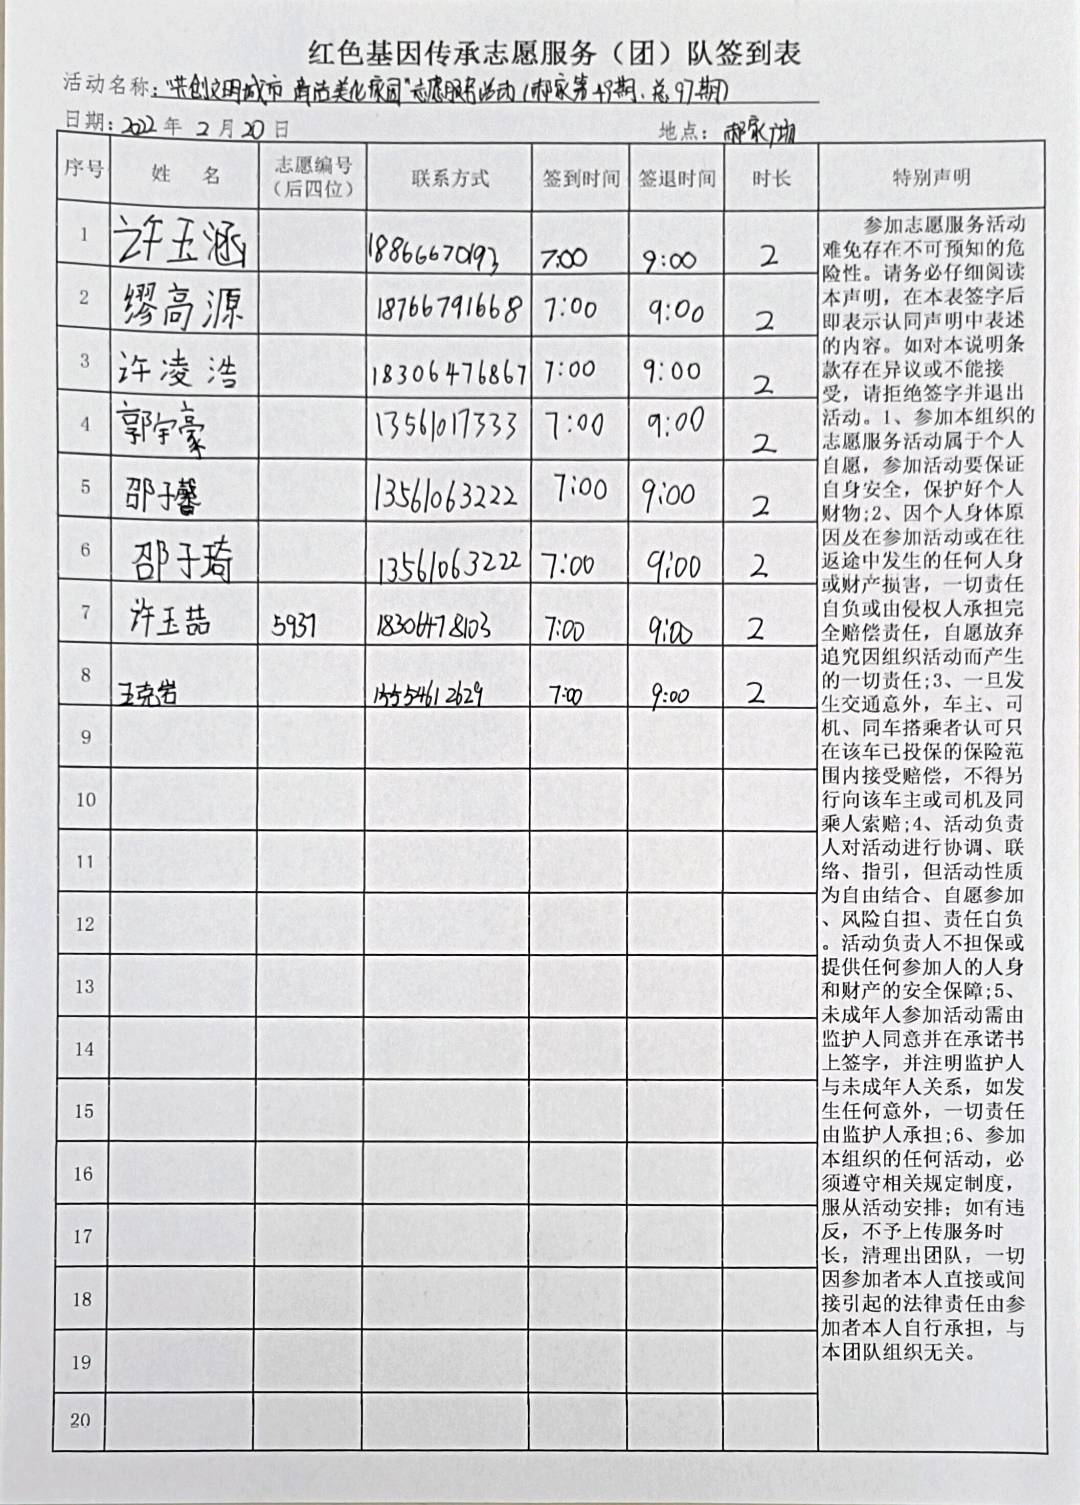 红色基因传承志愿服务（团）队签到表
活动名称："共创文明城市 清洁美化家园"志愿服务活动（郝家第49期、总97期）
日期：2022年2月20日 地点：郝家广场
序号 姓 名 志愿编号（后四位） 联系方式 签到时间 签退时间 时长 特别声明
1 许玉涵 18866670193 7:00 9:00 2
2 缪高源 18766791668 7:00 9:00 2
3 许凌浩 18306476867 7:00 9:00 2
4 郭宇豪 13561017333 7:00 9:00 2
5 邵子馨 13561063222 7:00 9:00 2
6 邵子琦 13561063222 7:00 9:00 2
7 许玉喆 5937 18306478103 7:00 9:00 2
8 王克岩 15554612629 7:00 9:00 2
9
10
11
12
13
14
15
16
17
18
19
20
参加志愿服务活动
难免存在不可预知的危
险性。请务必仔细阅读
本声明，在本表签字后
即表示认同声明中表述
的内容。如对本说明条
款存在异议或不能接
受，请拒绝签字并退出
活动。1、参加本组织的
志愿服务活动属于个人
自愿，参加活动要保证
自身安全，保护好个人
财物;2、因个人身体原
因及在参加活动或在往
返途中发生的任何人身
或财产损害，一切责任
自负或由侵权人承担完
全赔偿责任，自愿放弃
追究因组织活动而产生
的一切责任;3、一旦发
生交通意外，车主、司
机、同车搭乘者认可只
在该车已投保的保险范
围内接受赔偿，不得另
行向该车主或司机及同
乘人索赔;4、活动负责
人对活动进行协调、联
络、指引，但活动性质
为自由结合、自愿参加
、风险自担、责任自负
。活动负责人不担保或
提供任何参加人的人身
和财产的安全保障;5、
未成年人参加活动需由
监护人同意并在承诺书
上签字，并注明监护人
与未成年人关系，如发
生任何意外，一切责任
由监护人承担;6、参加
本组织的任何活动，必
须遵守相关规定制度，
服从活动安排；如有违
反，不予上传服务时
长，清理出团队，一切
因参加者本人直接或间
接引起的法律责任由参
加者本人自行承担，与
本团队组织无关。